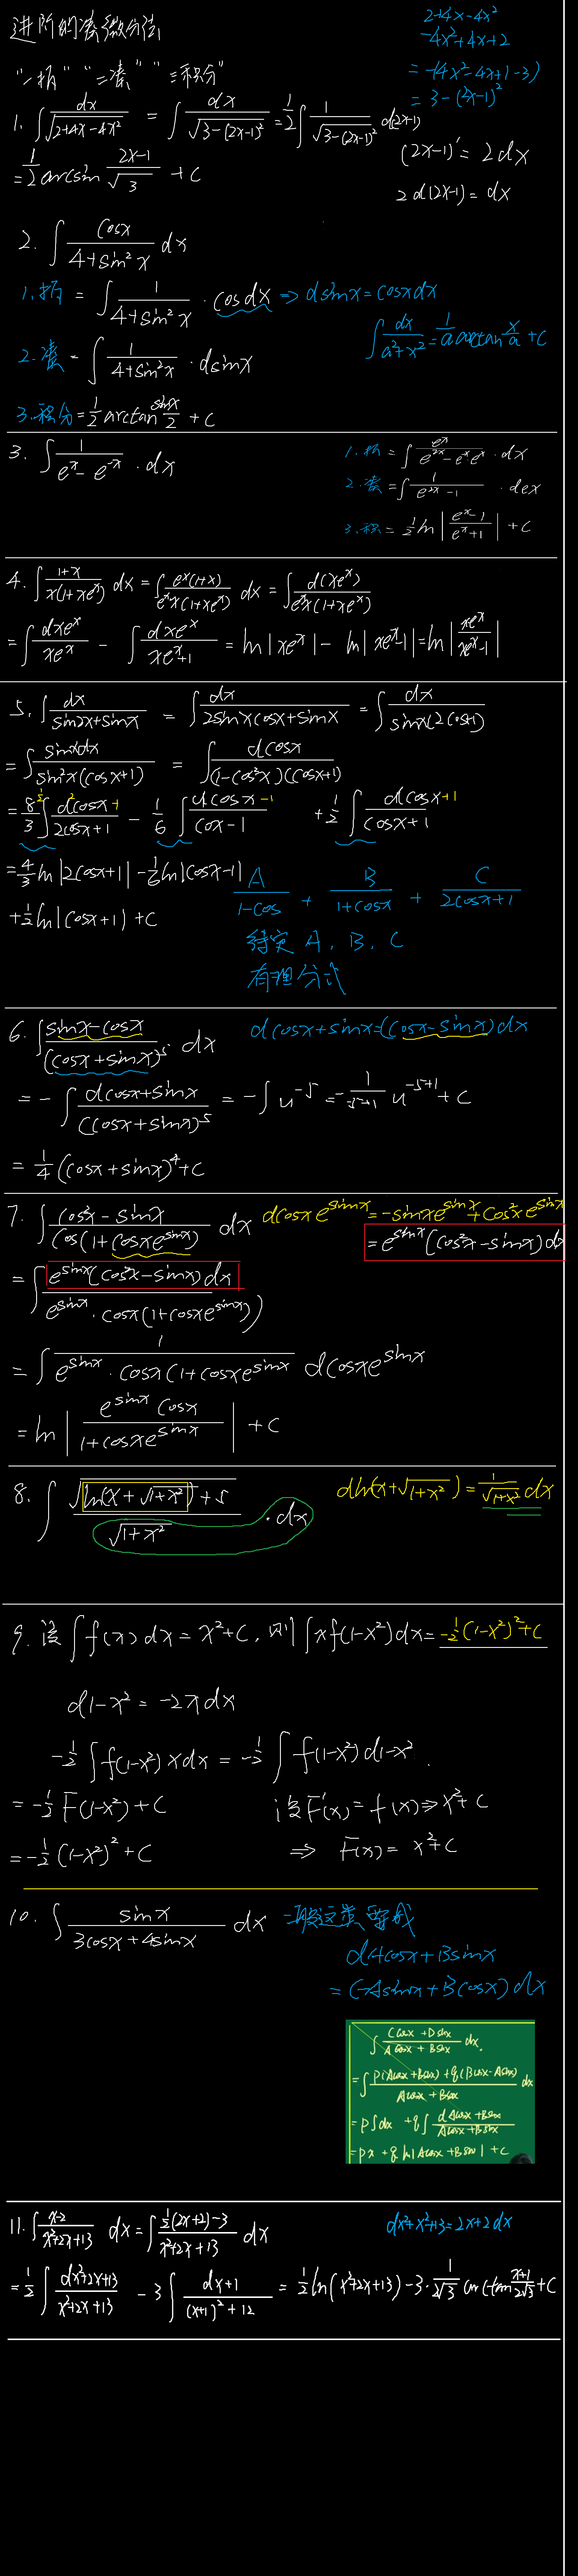 进阶的凑微分法
2+4x-4x²
-4x²+4x+2
= -(4x²-4x+1-3)
= 3-(2x-1)²
"一拆" "二凑" "三积分"
1. ∫ dx/√(2+4x-4x²) = ∫ dx/√(3-(2x-1)²) = 1/2 ∫ 1/√(3-(2x-1)²) d(2x-1)
(2x-1)' = 2dx
= 1/2 arcsin (2x-1)/√3 + C
2 d(2x-1) = dx
2. ∫ cosx/(4+sin²x) dx
1.拆 = ∫ 1/(4+sin²x) · cosdx ⇒ dsinx = cosxdx
∫ dx/(a²+x²) = 1/a arctan x/a + C
2.凑 = ∫ 1/(4+sin²x) · dsinx
3.积分 = 1/2 arctan sinx/2 + C
3. ∫ 1/(e^x-e^-x) · dx
1.拆 = ∫ e^x/(e^2x-e^-x e^x) · dx
2.凑 = ∫ 1/(e^2x-1) · dex
3.积 = 1/2 ln|(e^x-1)/(e^x+1)| + C
4. ∫ (1+x)/(x(1+xe^x)) dx = ∫ e^x(1+x)/(e^x x(1+xe^x)) dx = ∫ d(xe^x)/(e^x x(1+xe^x))
= ∫ dxe^x/xe^x - ∫ dxe^x/(xe^x+1) = ln|xe^x| - ln|xe^x-1| = ln|xe^x/(xe^x-1)|
5. ∫ dx/(sin2x+sinx) = ∫ dx/(2sinxcosx+sinx) = ∫ dx/(sinx(2cos+1))
= ∫ sinxdx/(sin²x(cosx+1)) = ∫ dcosx/((1-cos²x)(cosx+1))
= 8/3 · 1/2 ∫ d2cosx+1/(2cosx+1) - 1/6 ∫ dcosx-1/(cox-1) + 1/2 ∫ dcosx+1/(cosx+1)
= 4/3 ln|2cosx+1| - 1/6 ln|cosx-1|
+ 1/2 ln|cosx+1) + C
A/(1-cos) + B/(1+cosx) + C/(2cosx+1)
待定 A、B、C
有理分式
6. ∫ (sinx-cosx)/(cosx+sinx)^5 dx
dcosx+sinx=(cosx-sinx)dx
= - ∫ dcosx+sinx/(cosx+sinx)^5 = - ∫ u^-5 = - 1/(-5+1) u^(-5+1) + C
= 1/4 (cosx+sinx)^4 + C
7. ∫ (cos²x-sinx)/(cos(1+cosxe^sinx)) dx
dcosxe^sinx = -sinxe^sinx+cos²xe^sinx
= e^sinx(cos²x-sinx)dx
= ∫ e^sinx(cos²x-sinx)dx/(e^sinx · cosx(1+cosxe^sinx))
= ∫ 1/(e^sinx · cosx(1+cosxe^sinx) dcosxe^sinx
= ln|e^sinx cosx/(1+cosxe^sinx)| + C
8. ∫ √(ln(x+√(1+x²))+5)/√(1+x²) · dx
dln(x+√(1+x²)) = 1/√(1+x²) dx
9. 设∫f(x)dx = x²+C, 则∫xf(1-x²)dx = -1/2(1-x²)²+C
d1-x² = -2xdx
-1/2 ∫ f(1-x²)xdx = -1/2 ∫ f(1-x²)d1-x².
= -1/2 F(1-x²)+C
设F'(x) = f(x) ⇒ x²+C
= -1/2 (1-x²)²+C
⇒ F(x) = x²+C
10. ∫ sinx/(3cosx+4sinx) dx
一般这类要成
dAcosx+Bsinx
= (-Asinx+Bcosx)dx
∫ (Ccosx+Dsinx)/(Acosx+Bsinx) dx.
= ∫ (p(Acosx+Bsinx)+q(Bcosx-Asinx))/(Acosx+Bsinx) dx
= p∫dx + q∫ dAcosx+Bsinx/(Acosx+Bsinx)
= px+q ln|Acosx+Bsinx|+C
11. ∫ (x-2)/(x²+2x+13) dx = ∫ (1/2(2x+2)-3)/(x²+2x+13) dx
dx²+x²+13=2x+2dx
= 1/2 ∫ dx²+2x+13/(x²+2x+13) - 3 ∫ dx+1/((x+1)²+12) = 1/2 ln(x²+2x+13) - 3 · 1/2√3 arctan (x+1)/2√3 + C